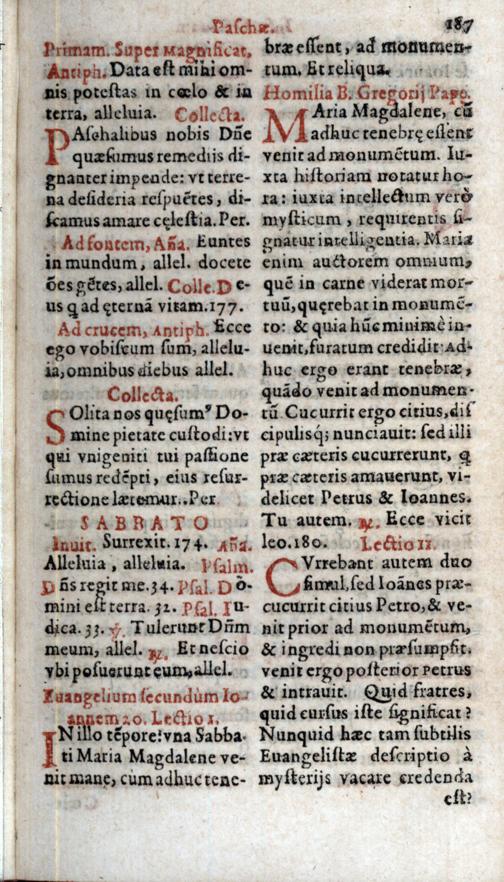 Paschæ. 187
Primam. Super Magnificat,
Antiph. Data est mihi om-
nis potestas in cœlo & in
terra, alleluia. Collecta.
PAschalibus nobis Dñe
quæsumus remediis di-
gnanter impende: vt terre-
na desideria respuẽtes, di-
scamus amare cęlestia. Per.
Ad fontem, Aña. Euntes
in mundum, allel. docete
ões gẽtes, allel. Colle. De-
us q ad ęternã vitam. 177.
Ad crucem, Antiph. Ecce
ego vobiscum sum, allelu-
ia, omnibus diebus allel.
Collecta.
SOlita nos quęsumꝰ Do-
mine pietate custodi: vt
qui vnigeniti tui passione
sumus redẽpti, eius resur-
rectione lætemur. Per
SABBATO
Inuit. Surrexit. 174. Aña.
Alleluia, alleluia. Psalm.
Dñs regit me. 34. Psal. Dò-
mini est terra. 32. Psal. Iu-
dica. 33. ℣. Tulerunt Dñm
meum, allel. ℟. Et nescio
vbi posuerunt eum, allel.
Euangelium secundùm Io-
annem 20. Lectio 1.
IN illo tẽpore: vna Sabba-
ti Maria Magdalene ve-
nit manę, cùm adhuc tene-
bræ essent, ad monumen-
tum. Et reliqua.
Homilia B. Gregorij Pape.
MAria Magdalene, cũ
adhuc tenebrę essent
venit ad monumẽtum. Iu-
xta historiam notatur ho-
ra: iuxta intellectum verò
mysticum, requirentis si-
gnatur intelligentia. Maria
enim auctorem omnium,
quẽ in carne viderat mor-
tuũ, quęrebat in monumẽ-
to: & quia hũc minimè in-
uenit, furatum credidit: Ad-
huc ergo erant tenebræ,
quãdo venit ad monumen-
tũ. Cucurrit ergo citius, dis
cipulisq; nunciauit: sed illi
præ cæteris cucurrerunt, q
præ cæteris amauerunt, vi-
delicet Petrus & Ioannes.
Tu autem. ℟. Ecce vicit
leo. 180. Lectio 11.
CVrrebant autem duo
simul, sed Ioãnes præ-
cucurrit citius Petro, & ve-
nit prior ad monumẽtum,
& ingredi non præsumpsit.
venit ergo posterior Petrus
& intrauit. Quid fratres,
quid cursus iste significat?
Nunquid hæc tam subtilis
Euangelistæ descriptio à
mysterijs vacare credenda
est?